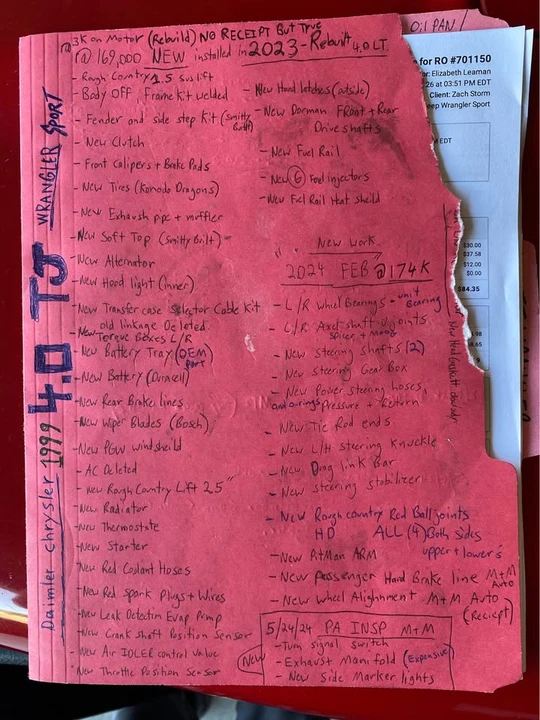 3K on Motor (Rebuild) NO RECEIPT But True
@ 169,000 NEW installed in 2023 - Rebuilt 4.0 LT.
Daimler chrysler 1999 4.0 TJ WRANGLER SPORT
- Rough Country 1.5 sus lift
- Body OFF, Frame Kit welded
- Fender and side step Kit (Smitty Built)
- New Clutch
- Front Calipers + Brake Pads
- New Tires (Kanada Dragons)
- New Exhaush pipe + muffler
- New Soft Top (Smitty Built) -
- New Alternator
- New Hood light (inner)
- New Transfercase Selector Cable Kit
old linkage Deleted
- New Torque Boxes L/R
- New Battery Tray (OEM Part)
- New Battery (Duracell)
- New Rear Brake lines
- New Wiper Blades (Bosch)
- New PGW windsheild
- AC Deleted
- new Rough Country Lift 2.5"
- New Radiator
- New Thermostate
- New Starter
- New Red Coolant Hoses
- New Red Spark Plugs + Wires
- New Leak Detection Evap Pump
- New Crank shaft Position Sensor
- New Air IDLER control Value
- New Throttle Position Sensor
- New Hood latches (outside)
- New Dorman FRont + Rear
Drive shafts
- New Fuel Rail
- New 6 Fuel injectors
- New Fuel Rail Heat sheild
New work
2024 FEB @ 174K
- L/R Wheel Bearings - unit Bearing
- L/R Axel shaft u joints
- New steering shafts (2)
- New Steering Gear Box
- New Power steering hoses,
and o-rings Pressure + Return
- New Tie Rod ends
- New L/H steering Knuckle
- New Drag link Bar
- New steering stabilizer
- New Rough country Red Ball joints
HD ALL (4) Both sides
upper + lower's
- New PitMan ARM
- New Passenger Hard Brake line M+M Auto
- New Wheel Alighnment M+M Auto
(Reciept)
5/24/24 PA INSP M+M
- Turn signal switch
NEW - Exhaust Manifold (Expensive)
- New Side Marker lights
for RO #701150
for: Elizabeth Leaman
26 at 03:51 PM EDT
Client: Zach Storm
eep Wrangler Sport
EDT
$30.00
$37.58
$12.00
$0.00
$84.35